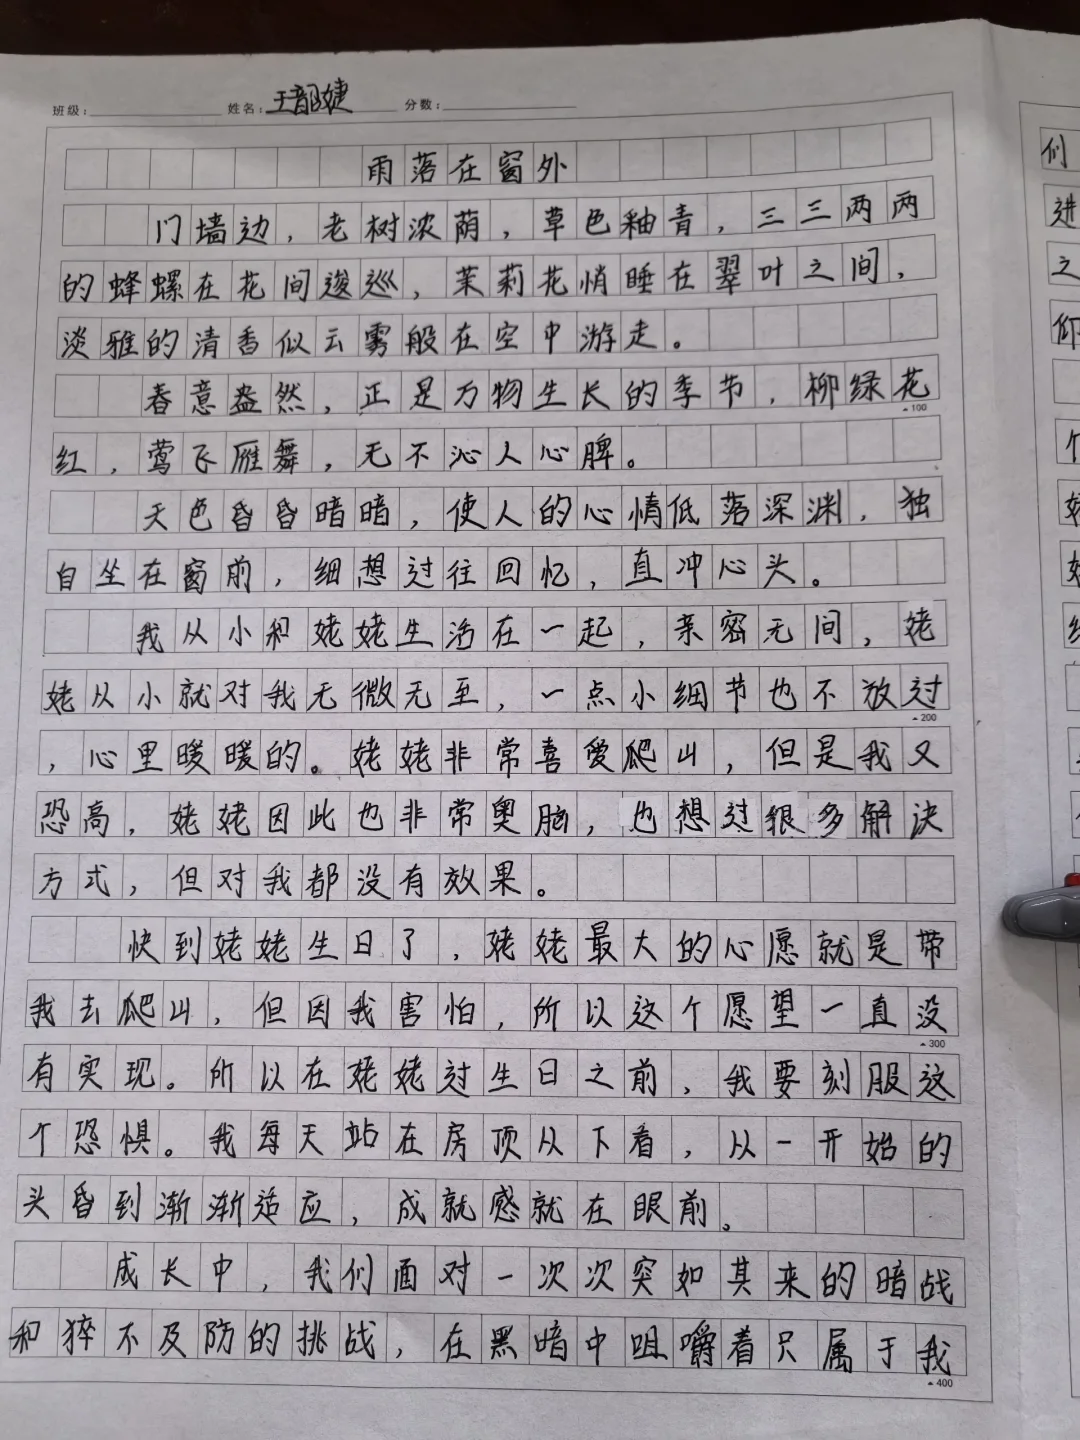 班级： 姓名：王韶婕 分数：
雨落在窗外
门墙边，老树浓荫，草色釉青，三三两两
的蜂螺在花间逡巡，茉莉花悄睡在翠叶之间，
淡雅的清香似云雾般在空中游走。
春意盎然，正是万物生长的季节，柳绿花
100
红，莺飞雁舞，无不沁人心脾。
天色昏昏暗暗，使人的心情低落深渊，独
自坐在窗前，细想过往回忆，直冲心头。
我从小和姥姥生活在一起，亲密无间，姥
姥从小就对我无微无至，一点小细节也不放过
200
，心里暖暖的。姥姥非常喜爱爬山，但是我又
恐高，姥姥因此也非常奥脑，也想过很多解决
方式，但对我都没有效果。
快到姥姥生日了，姥姥最大的心愿就是带
我去爬山，但因我害怕，所以这个愿望一直没
300
有实现。所以在姥姥过生日之前，我要刻服这
个恐惧。我每天站在房顶从下看，以一开始的
头昏到渐渐适应，成就感就在眼前。
成长中，我们面对一次次突如其来的暗战
和猝不及防的挑战，在黑暗中咀嚼着只属于我
400
们
进
之
仰
个